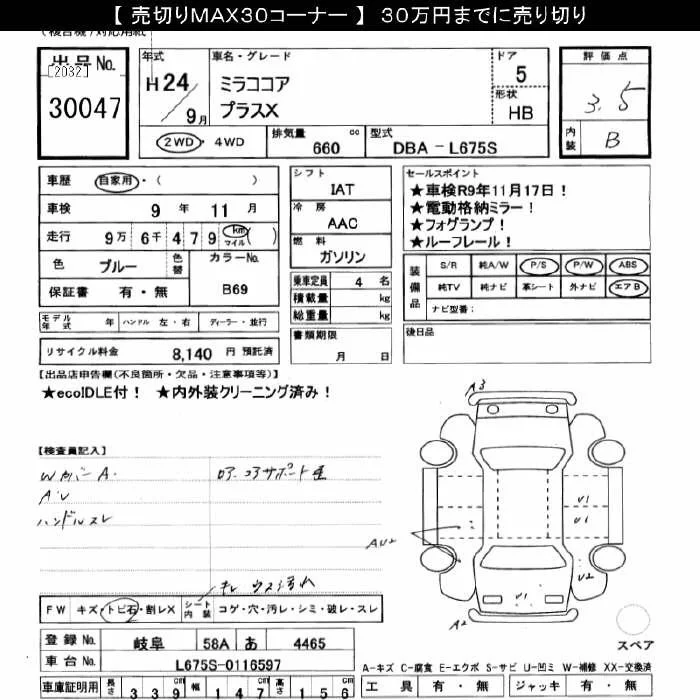 【 売切りMAX30コーナー 】 30万円までに売り切り
(複合機)対応用紙
出品No.
[2032]
30047
年式
H24
9月
車名・グレード
ミラココア
プラスX
ドア
5
形状
HB
評価点
3.5
内装
B
2WD ・ 4WD
排気量
660 cc
型式
DBA - L675S
車歴 自家用・( )
車検 9 年 11 月
走行 9万 6千 4 7 9 km マイル ( )
色 ブルー 色替
カラーNo.
B69
保証書 有 ・ 無
シフト
IAT
冷房
AAC
燃料
ガソリン
乗車定員 4 名
積載量 kg
総重量 kg
書類期限
月 日
セールスポイント
★車検R9年11月17日!
★電動格納ミラー!
★フォグランプ!
★ルーフレール!
装備品
S/R 純A/W P/S P/W ABS
純TV 純ナビ 革シート 外ナビ エアB
ナビ型番:
後日品
モデル年式 年 ハンドル 左・右 ディーラー・並行
リサイクル料金 8,140 円 預託済
【出品店申告欄(不良箇所・欠品・注意事項等)】
★ecoIDLE付! ★内外装クリーニング済み!
【検査員記入】
A・U
ハンドルスレ
コアサポート
A3
U1
U1
AU2
U2
A2
FW キズ・トビ石・割レX
シート内装 コゲ・穴・汚レ・シミ・破レ・スレ
スペア
登録No. 岐阜 58A あ 4465
車台No. L675S-0116597
A-キズ C-腐食 E-エクボ S-サビ U-凹ミ W-補修 XX-交換済
車庫証明用 長さ 3 3 9 幅 1 4 7 高さ 1 5 6
工具 有 ・ 無 ジャッキ 有 ・ 無